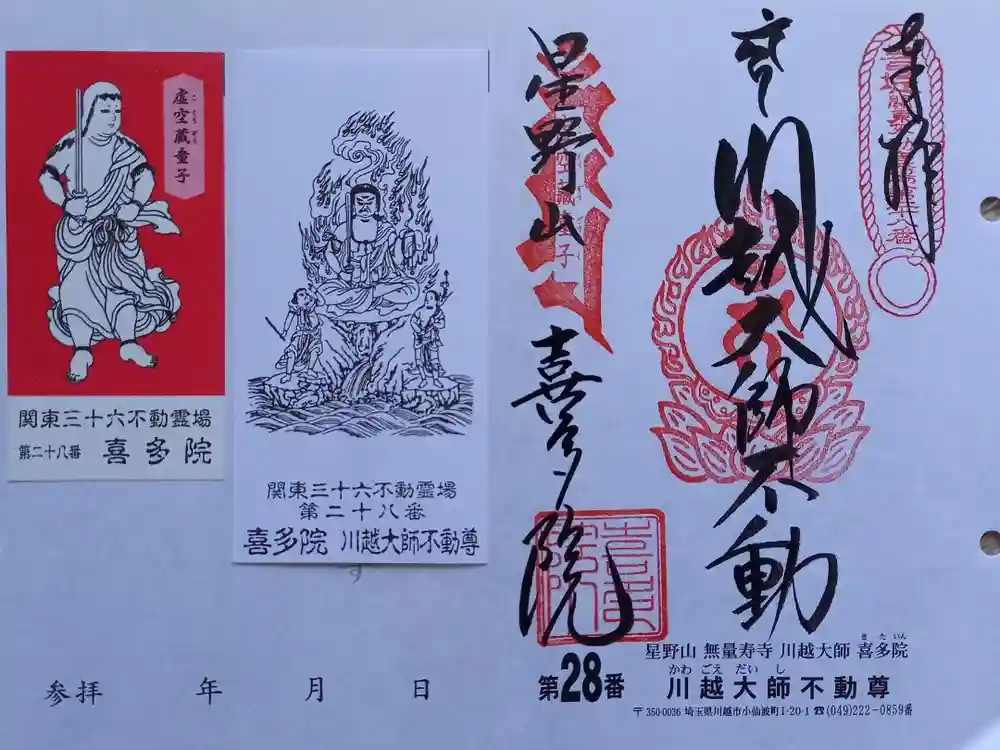 虚空蔵童子
こくうぞうどうじ
関東三十六不動霊場
第二十八番 喜多院
関東三十六不動霊場
第二十八番
喜多院 川越大師不動尊
参拝 年 月 日
奉拝
川越大師不動
星野山
喜多院
星野山 無量寿寺 川越大師 喜多院
きたいん
第28番
川越大師不動尊
かわごえだいし
〒350-0036 埼玉県川越市小仙波町1-20-1 ☎(049)222-0859番